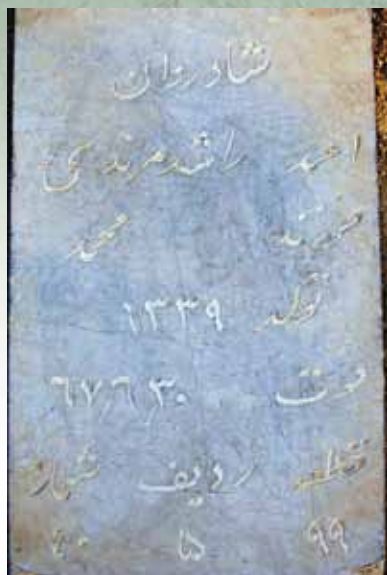 شادروان
احمد راشدمرندی
فرزند محمد
تولد ۱۳۳۹
فوت ۶۷/۶/۳۰
قطعه ردیف شماره
۹۹ ۱۵